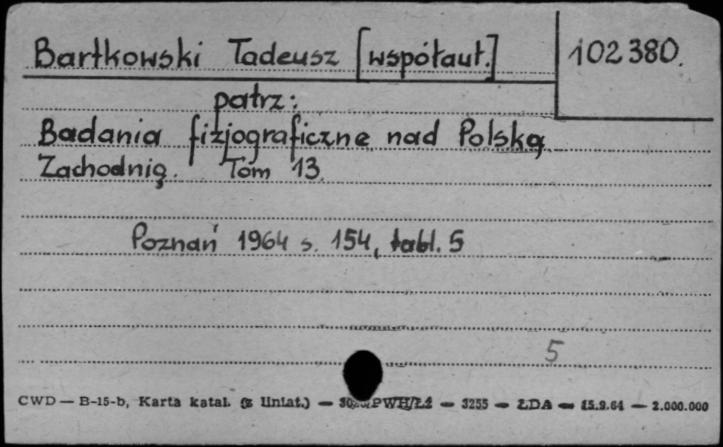 Bartkowski Tadeusz [współaut.] 102380.
patrz:
Badania fizjograficzne nad Polską
Zachodnią. Tom 13.
Poznań 1964 s. 154, tabl. 5
5
CWD — B-15-b, Karta katal. (z liniat.) — PWH/Ł1 — 3255 — ŁDA — 15.9.61 — 2.000.000